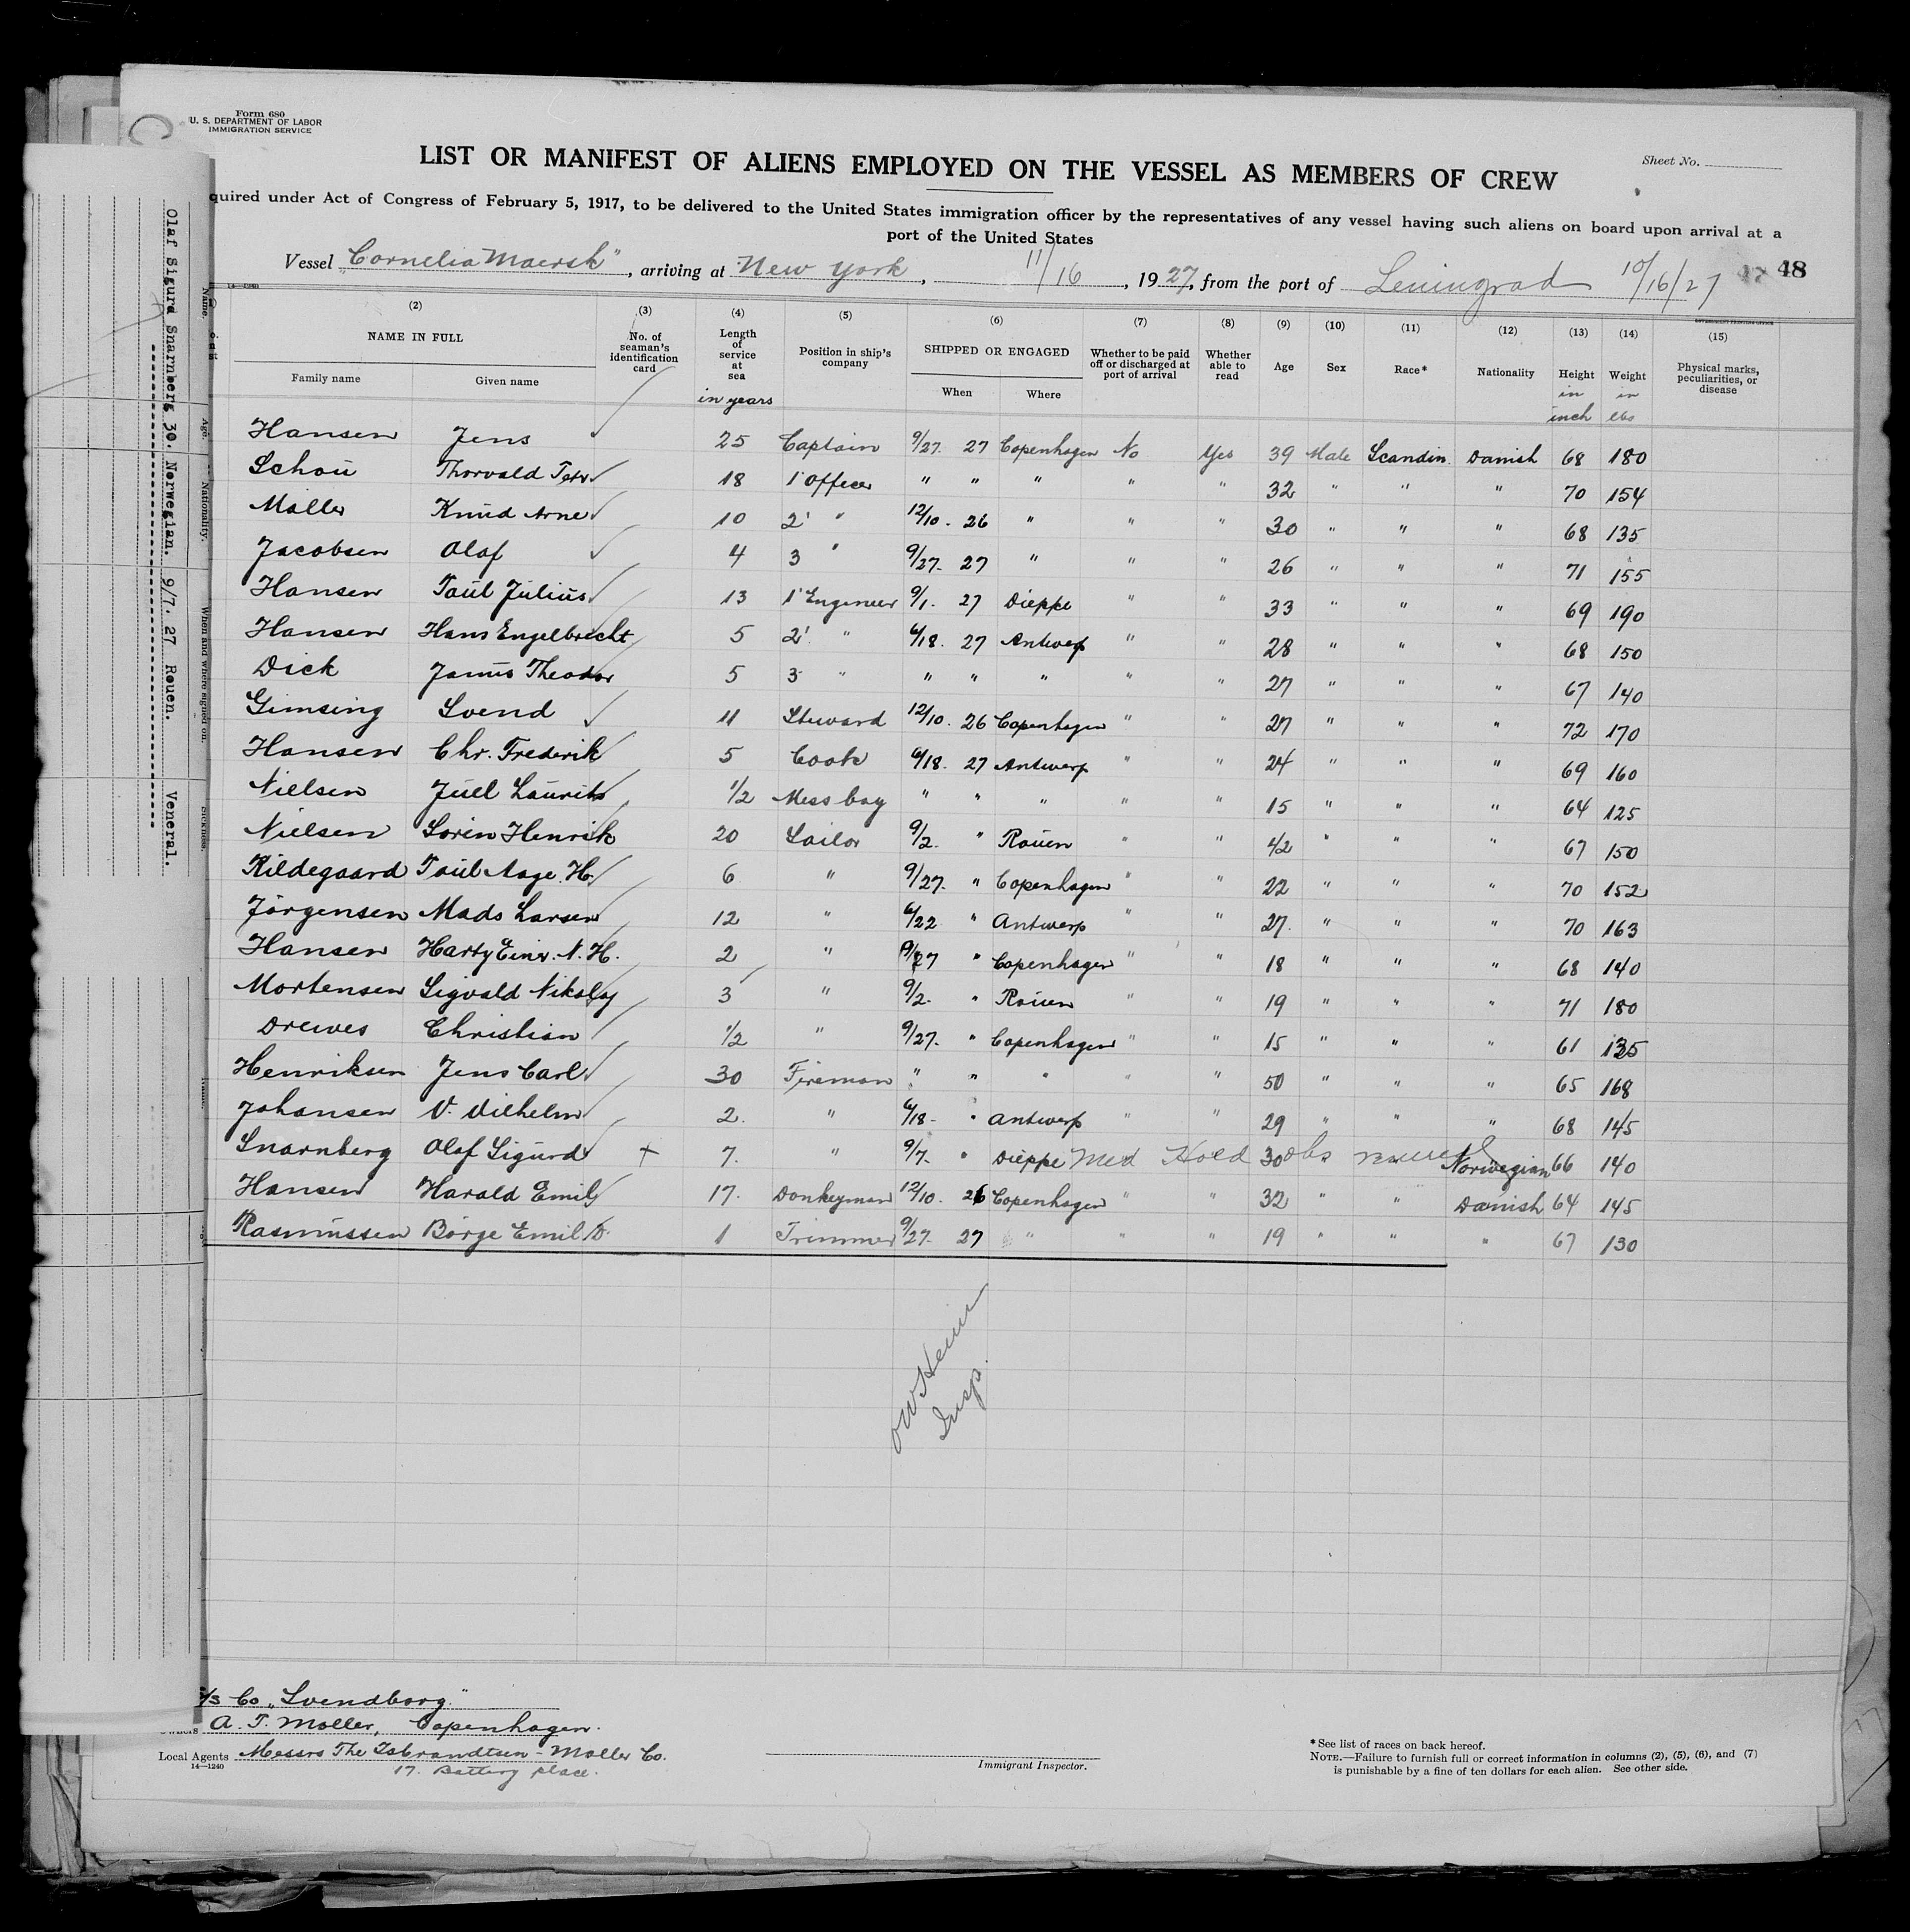 Form 680
U. S. DEPARTMENT OF LABOR
IMMIGRATION SERVICE
LIST OR MANIFEST OF ALIENS EMPLOYED ON THE VESSEL AS MEMBERS OF CREW
Sheet No.
quired under Act of Congress of February 5, 1917, to be delivered to the United States immigration officer by the representatives of any vessel having such aliens on board upon arrival at a
port of the United States
Vessel "Cornelia Maersk", arriving at New York, 11/16, 1927, from the port of Leningrad 10/16/27 48
14—1240
(2) (3) (4) (5) (6) (7) (8) (9) (10) (11) (12) (13) (14) (15)
NAME IN FULL No. of seaman's identification card Length of service at sea Position in ship's company SHIPPED OR ENGAGED Whether to be paid off or discharged at port of arrival Whether able to read Age Sex Race* Nationality Height Weight Physical marks, peculiarities, or disease
Family name Given name in years When Where in inch in lbs
Hansen Jens 25 Captain 9/27. 27 Copenhagen No Yes 39 Male Scandin. Danish 68 180
Schou Thorvald Petr. 18 1' Officer " " " " " 32 " " " 70 154
Möller Knud Arne 10 2' " 12/10. 26 " " " 30 " " " 68 135
Jacobsen Olaf 4 3 " 9/27. 27 " " " 26 " " " 71 155
Hansen Paul Julius 13 1' Engineer 9/1. 27 Dieppe " " 33 " " " 69 190
Hansen Hans Engelbrecht 5 2' " 6/18. 27 Antwerp " " 28 " " " 68 150
Dick Janus Theodor 5 3 " " " " " " 27 " " " 67 140
Gimsing Svend 11 Steward 12/10. 26 Copenhagen " " 27 " " " 72 170
Hansen Chr. Frederik 5 Cook 6/18. 27 Antwerp " " 24 " " " 69 160
Nielsen Juel Laurits 1/2 Mess boy " " " " " 15 " " " 64 125
Nielsen Sörin Henrik 20 Sailor 9/2. " Rouen " " 42 " " " 67 150
Kildegaard Paul Aage H. 6 " 9/27. " Copenhagen " " 22 " " " 70 152
Jörgensen Mads Larsen 12 " 6/22 " Antwerp " " 27. " " " 70 163
Hansen Harry Einr. N. H. 2 " 9/27 " Copenhagen " " 18 " " " 68 140
Mortensen Sigvald Nikolaj 3 " 9/2. " Rouen " " 19 " " " 71 180
Drewes Christian 1/2 " 9/27. " Copenhagen " " 15 " " " 61 135
Henriksen Jens Carl 30 Fireman " " " " " 50 " " " 65 168
Johansen V. Vilhelm 2. " 6/18. " Antwerp " " 29 " " " 68 145
Snarnberg Olaf Sigurd + 7. " 9/7. " Dieppe Med Hold 30 obs Norwegian 66 140
Hansen Harald Emil 17. Donkeyman 12/10. 26 Copenhagen " " 32 " " Danish 64 145
Rasmussen Börge Emil D. 1 Trimmer 9/27. 27 " " " 19 " " " 67 130
Insp.
S/S Co "Svendborg."
Owners A. P. Moller, Copenhagen.
Local Agents Messrs The Isbrandtsen - Moller Co.
14—1240
17. Battery place.
Immigrant Inspector.
*See list of races on back hereof.
NOTE.—Failure to furnish full or correct information in columns (2), (5), (6), and (7)
is punishable by a fine of ten dollars for each alien. See other side.
Name. Age. Nationality. When and where signed on. Sickness.
Olaf Sigurd Snarnberg 30. Norwegian. 9/7. 27 Rouen. Veneral.